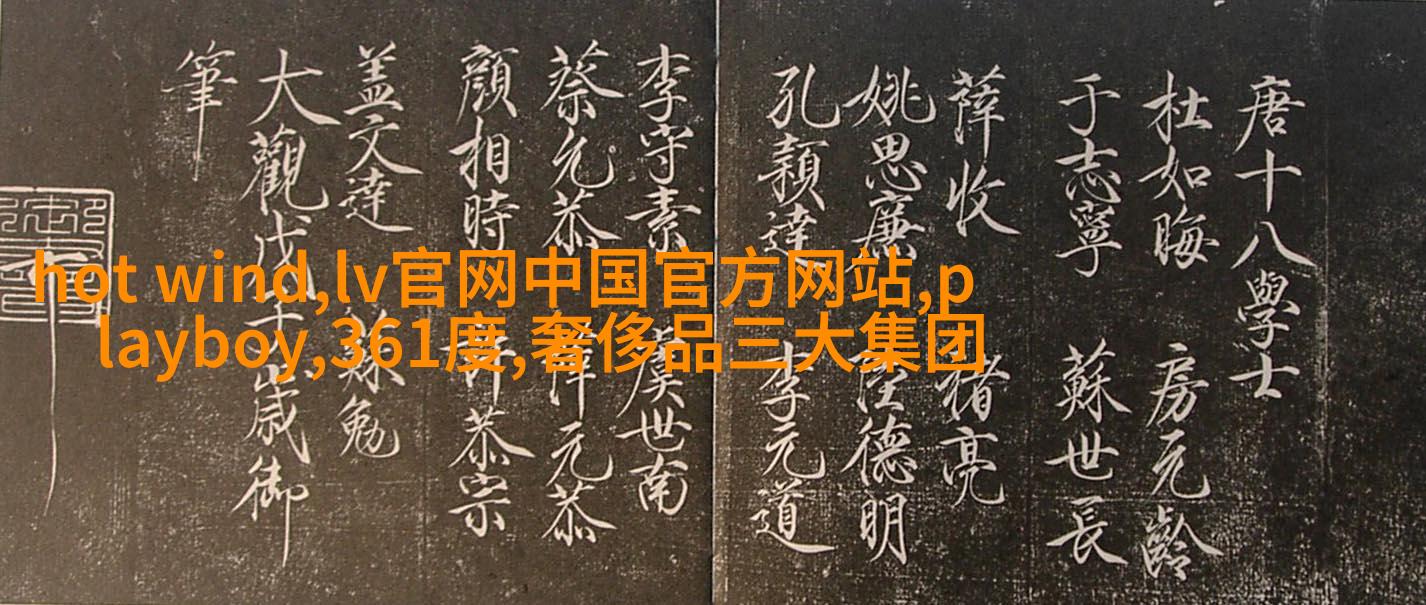 唐十八學士
杜如晦 房元齡
于志寧 蘇世長
薛收 褚亮
姚思廉 陸德明
孔穎達 李元道
李守素 虞世南
蔡允恭 薛元恭
顏相時 許恭宗
盖文達 蘇勉
大觀戊子歲御
筆
hot wind,lv官网中国官方网站,p
layboy,361度,奢侈品三大集团